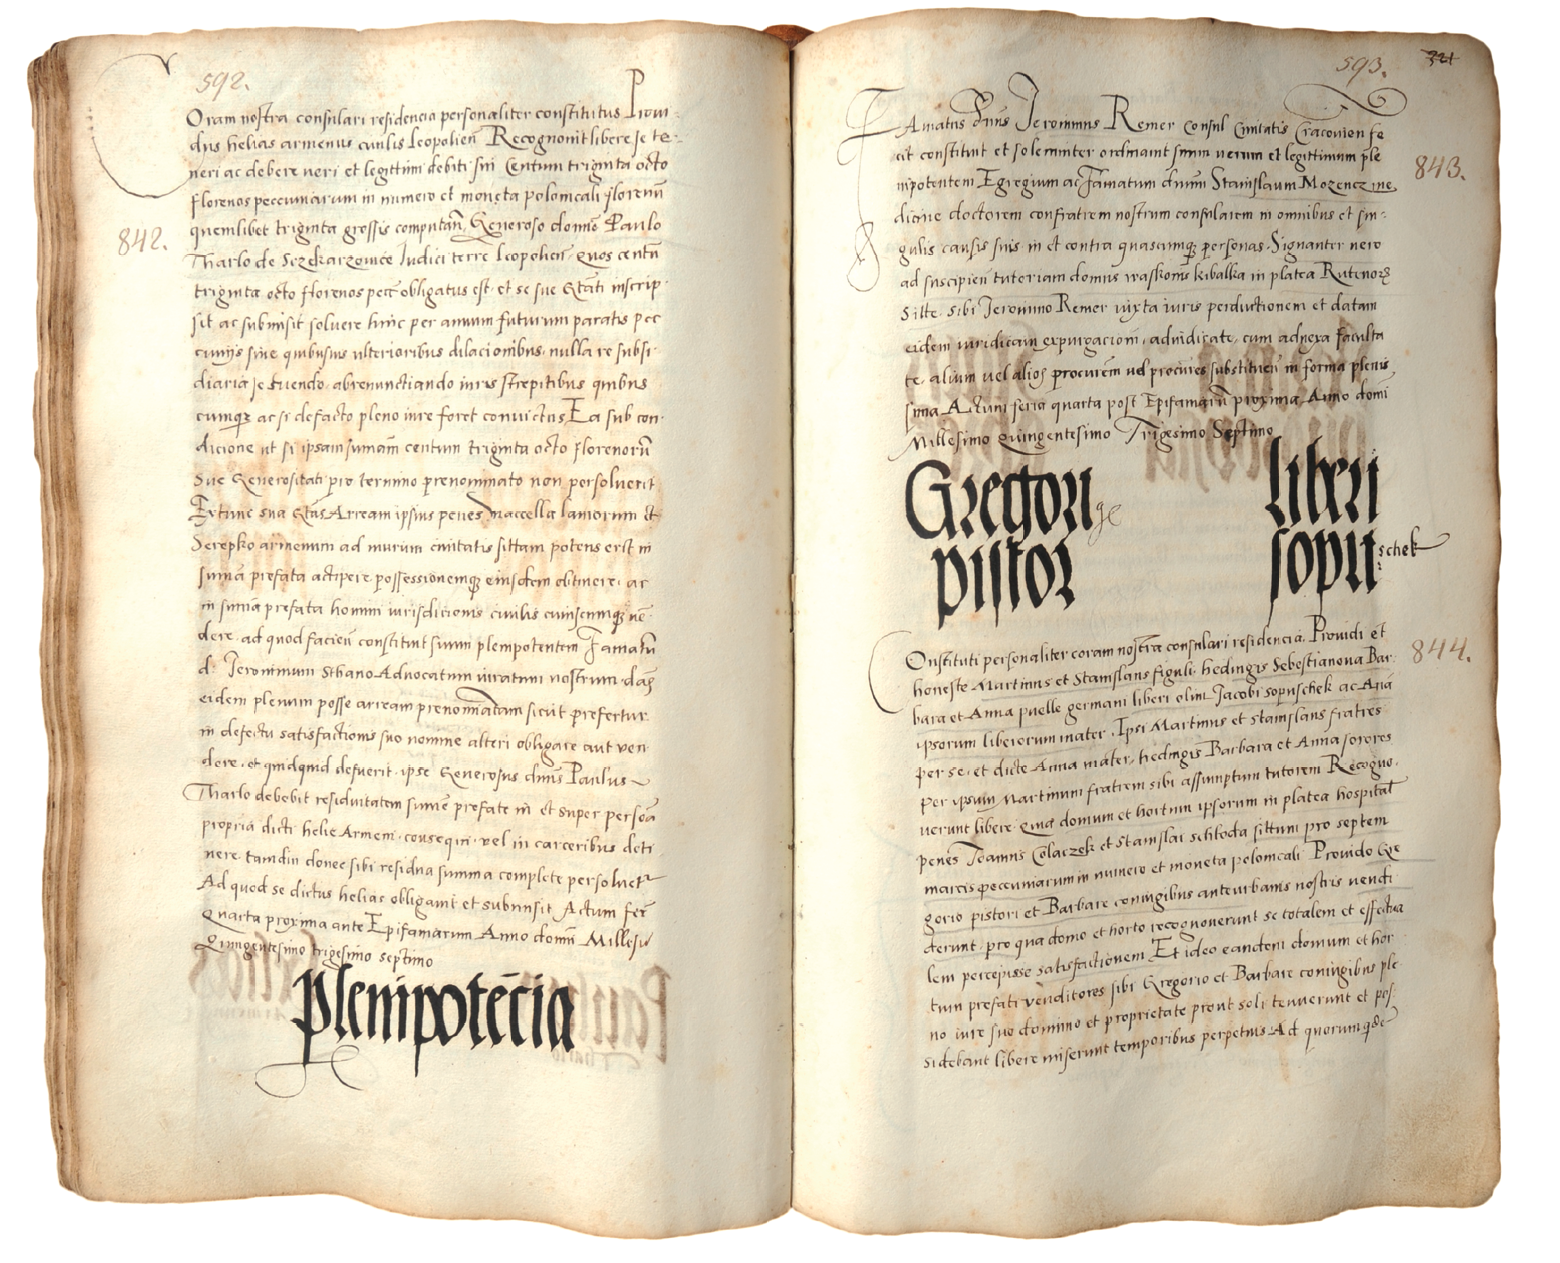 592.
Coram nostra consulari residencia personaliter constitutus Provi-
dus helias armenus civilis leopolien Recognovit libere se te-
neri ac debere veri et legittimi debiti sui Centum triginta octo
florenos pecuniarum in numero et moneta polonicali florenū
quemlibet triginta grossis computan̄ Generoso domno Paulo
Tharlo de Sczekarzovice Iudici terre leopolien quos centū
triginta octo florenos pecc̄ obligatus est et se sue Gtāti inscrip
sit ac submisit solvere hinc per annum futurum paratis pec
cuniis sine quibusvis ulterioribus dilacionibus nulla re subsi
diaria se tuendo abrenunctiando iuris strepitibus quibus
cumq̄ ac si defacto pleno iure foret convictus Ea sub con
dicione ut si ipsam sumam̄ centum triginta octo florenorū
Sue Generositati pro termino prenominato non persolverit
Extunc sua Gtās Arream ipsius penes maccella laniorum et
Serepko armenum ad murum civitatis sittam potens erit in
sumā prefata accipere possessionemq̄ eiusdem obtinere ac
in sumā prefata homini iurisdicionis civilis cuiuscumq̄ vē
dere ad quod facien̄ constituit suum plenipotentem Famatū
d. Jeronimum Sthano Advocatum iuratum nostrum dās
eidem plenum posse arream prenominatam sicut prefertur
in defectu satisfactionis suo nomine alteri obligare aut ven
dere et quidquid defuerit ipse Generosus dnus Paulus
Tharlo debebit residuitatem sume prefate in et super persōa
propria dicti helie Armeni consequi vel in carceribus deti
nere tamdiu donec sibi residua summa complete persolvetr
Ad quod se dictus helias obligavit et submisit Actum ferī
Quarta proxima ante Epifaniarum Anno domini Millesīo
Quingentesimo trigesimo septimo
842.
Plenipotēcia
593.
321
Famatus dnus Jeronimus Remer Consul Civitatis Cracovien fe
cit constituit et solemniter ordinavit suum verum et legittimum ple
nipotentem Egregium ac Famatum dnum Stanislaum Mozencz me
dicine doctorem confratrem nostrum consularem in omnibus et sin-
gulis causis suis in et contra quascumq̄ personas Signanter vero
ad suscipien̄ tutoriam domus waskonis kibalka in platea Rutenorz
Sitte sibi Jeronimo Remer iuxta iuris perductionem et datam
eidem iuridicam expurgacionī adiudicate cum adnexa faculta
te alium vel alios procurēm vel procures substituen̄ in forma plenis
sima Actum feria quarta post Epifaniarū proxima Anno domī
Millesimo Quingentesimo Trigesimo Septimo
843.
Gregori ge liberi
pistor sopu schek
Constituti personaliter coram nostra consulari residencia Providi et
honeste Martinus et Stanislaus figuli hedingis Sebestianova Bar
bara et Anna puelle germani liberi olim Jacobi sopuschek ac Anā
ipsorum liberorum mater Ipsi Martinus et Stanislaus fratres
per se et dicte Anna mater hedingis Barbara et Anna sorores
per ipsum Martinum fratrem sibi assumptum tutorem Recogno-
verunt libere Quia domum et hortum ipsorum in platea hospital
penes Joannis Colaczek et Stanislai schloda sittum pro septem
marcis pecuniarum in numero et moneta polonicali Provido Gre
gorio pistori et Barbare coniugibus antevrbanis nostris vendi
derunt pro qua domo et horto recognoverunt se totalem et effectua
lem percepisse satisfactionem Et ideo eandem domum et hor
tum prefati venditores sibi Gregorio et Barbare coniugibus ple
no iure suo dominio et proprietate prout soli tenuerunt et pos
sidebant libere miserunt temporibus perpetuis Ad quorum
844.